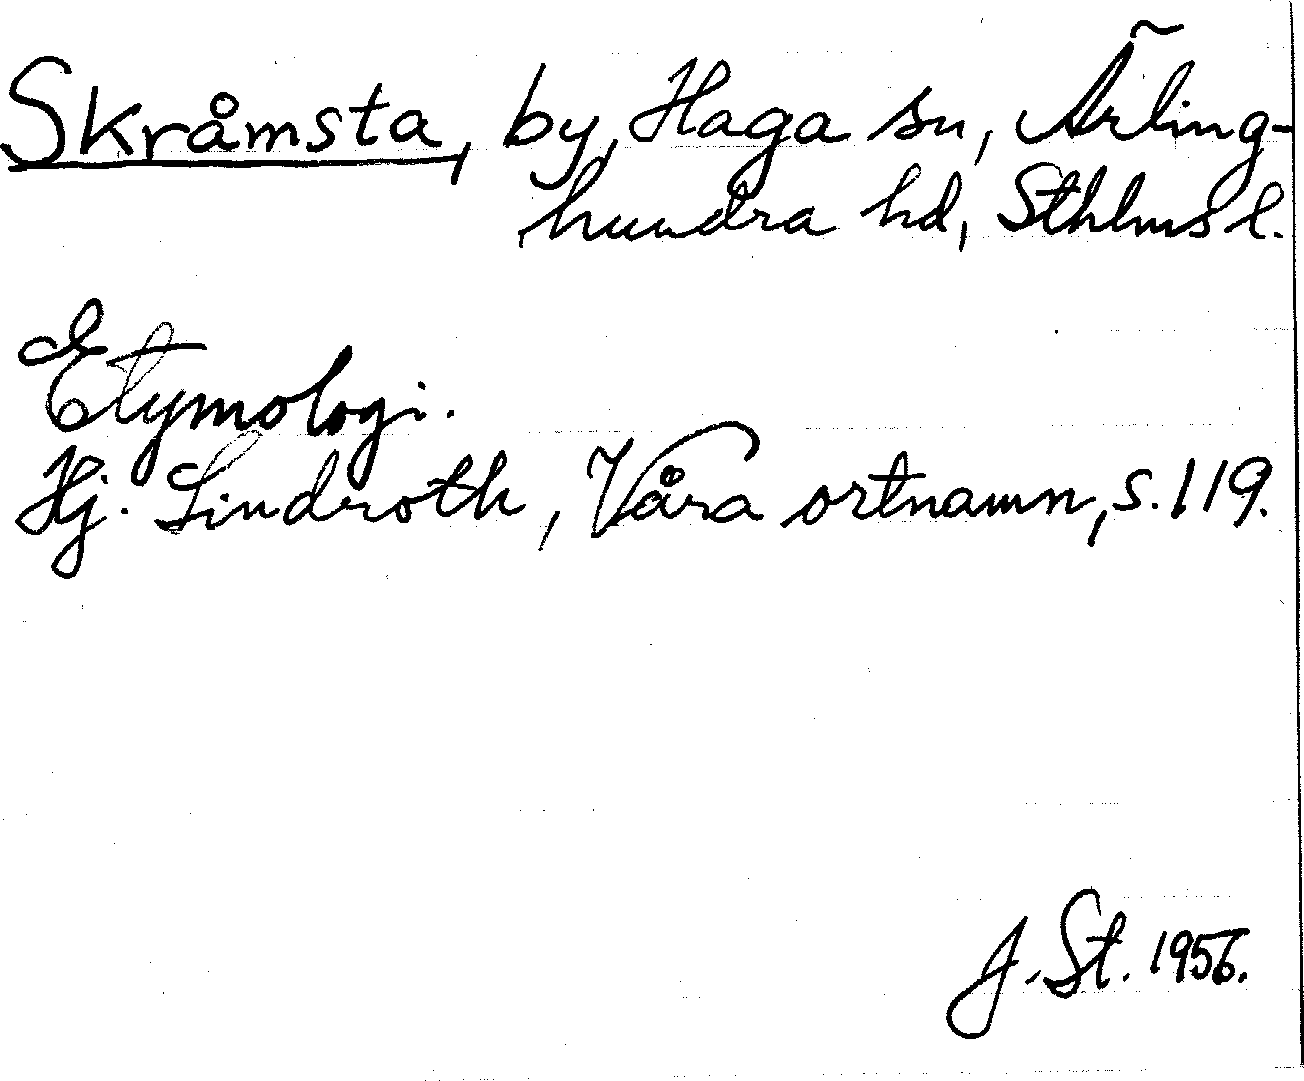 Skråmsta, by, Haga sn, Ärling-
hundra hd, Sthlms l.
Etymologi.
Hj. Lindroth, Våra ortnamn, s. 119.
J. St. 1956.